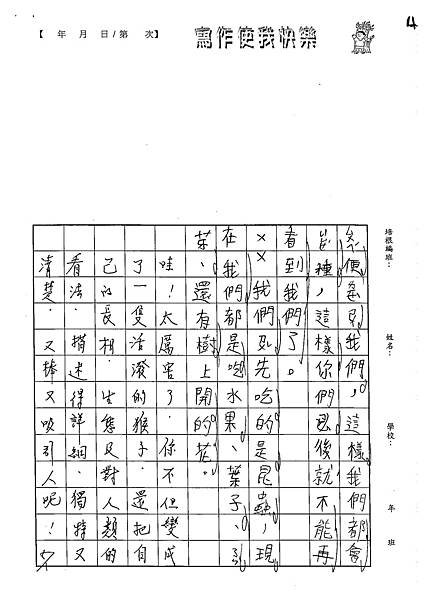 4
【 年 月 日/第 次】 寫作使我快樂
培根編班： 姓名： 學校： 年 班
便 我們，這樣我們都會
種，這樣你們 後就不能再
看到我們了。
××我們 先吃的是昆蟲，現
在我們都是吃水果、葉子、
芽、還有樹上開的花。
哇！太厲害了你不但變成
了一隻活潑的猴子，還把自
己的長相、生態及對人類的
看法、描述得詳細、獨特又
清楚，又棒又吸引人呢！